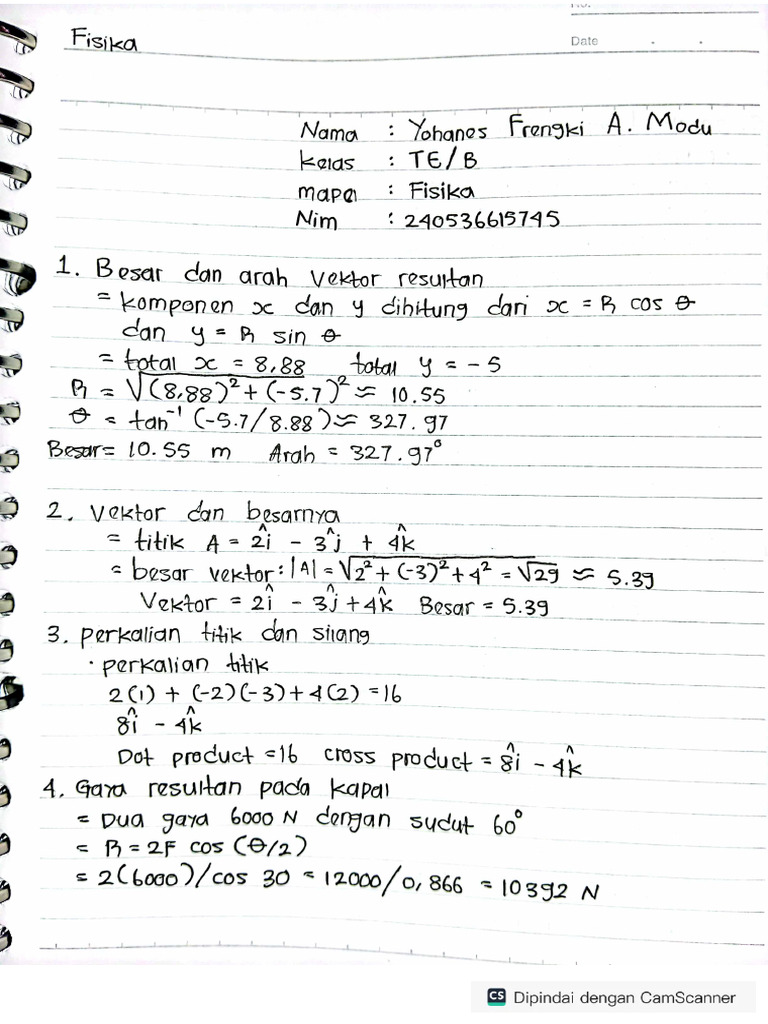 No.
Fisika
Date
Nama : Yohanes Frengki A. Modu
kelas : TE/B
mapel : Fisika
Nim : 240536615745
1. Besar dan arah vektor resultan
= komponen x dan y dihitung dari x = R cos θ
dan y = R sin θ
= total x = 8,88 total y = -5
R = √(8,88)² + (-5.7)² ≈ 10.55
θ = tan⁻¹ (-5.7/8.88) ≈ 327.97
Besar = 10.55 m Arah = 327.97°
2. Vektor dan besarnya
= titik A = 2î - 3ĵ + 4k̂
= besar vektor: |A| = √2² + (-3)² + 4² = √29 ≈ 5.39
Vektor = 2î - 3ĵ + 4k̂ Besar = 5.39
3. perkalian titik dan silang
· perkalian titik
2(1) + (-2)(-3) + 4(2) = 16
8î - 4k̂
Dot product = 16 cross product = 8î - 4k̂
4. Gaya resultan pada kapal
= Dua gaya 6000 N dengan sudut 60°
= R = 2F cos (θ/2)
= 2(6000)/cos 30 = 12000/0,866 = 10392 N
CS Dipindai dengan CamScanner